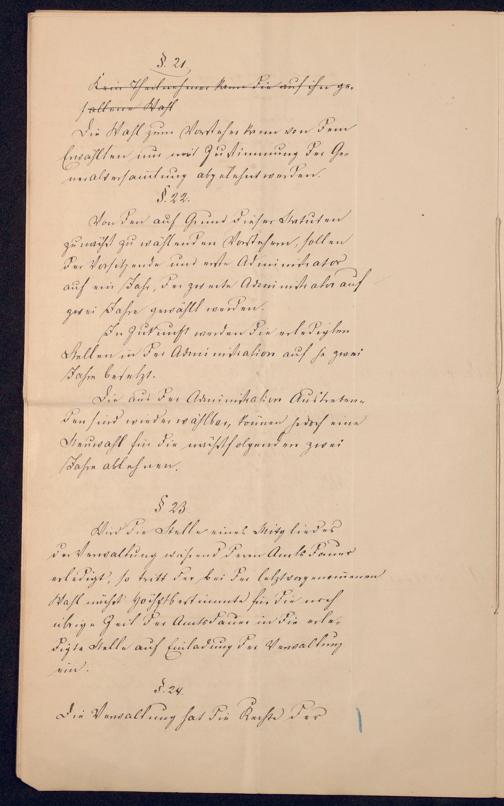 §. 21.
Kein Theilnehmer kann die auf ihn ge-
fallene Wahl
Die Wahl zum Vorsteher kann von dem
Erwählten nur mit Zustimmung der Ge-
neralversam̄lung abgelehnt werden.
§. 22.
Von den auf Grund dieser Statuten
zunächst zu wählenden Vorstehern, sollen
der Vorsitzende und erste Administrator
auf ein Jahr, der zweite Administrator auf
zwei Jahre gewählt werden.
In Zukunft werden die erledigten
Stellen in der Administration auf je zwei
Jahre besetzt.
Die aus der Administration Austreten-
den sind wieder wählbar, können jedoch eine
Neuwahl für die nächstfolgenden zwei
Jahre ablehnen.
§ 23
Wird die Stelle eines Mitgliedes
der Verwaltung während deren Amtsdauer
erledigt, so tritt der bei der letztvorgenom̄enen
Wahl nächst Höchstbestimmte für die noch
übrige Zeit der Amtsdauer in die erle-
digte Stelle auf Einladung der Verwaltung
ein.
§. 24.
Die Verwaltung hat die Rechte der